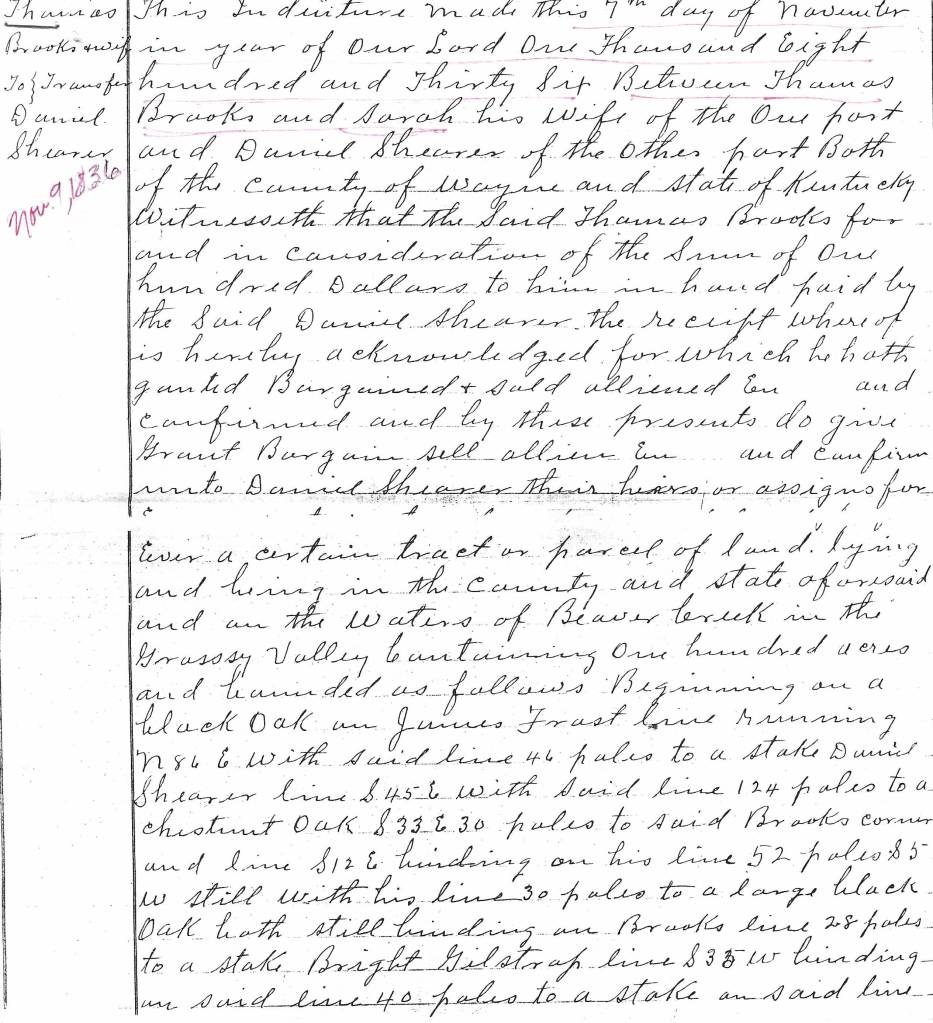 Thomas
Brooks & wif
To } Transfer
Daniel
Shearer
Nov. 9, 1836
This Indenture made this 7th day of November
in year of Our Lord One Thousand Eight
hundred and Thirty Six Between Thomas
Brooks and Sarah his Wife of the One part
and Daniel Shearer of the Other part Both
of the County of Wayne and state of Kentucky
Witnesseth that the Said Thomas Brooks for
and in consideration of the Sum of One
hundred Dollars to him in hand paid by
the Said Daniel Shearer the receipt where of
is hereby acknowledged for which he hath
ganted Bargained & sold alliened En and
confirmed and by these presents do give
Grant Bargain sell allien En and confirm
unto Daniel Shearer their heirs or assigns for
Ever a certain tract or parcel of land "lying"
and being in the County and state aforesaid
and on the Waters of Beaver Creek in the
Grasssy Valley Containing One hundred acres
and bounded as follows Beginning on a
black Oak on James Frost line running
N 86 E With said line 46 poles to a stake Daniel
Shearer line S 45 E with said line 124 poles to a
chestnut Oak S 33 E 30 poles to said Brooks corner
and line S 12 E binding on his line 52 poles S 5
W still with his line 30 poles to a large black
Oak hath still binding on Brooks line 28 poles
to a stake Bright Gilstrap line S 35 W binding
on said line 40 poles to a stake on said line